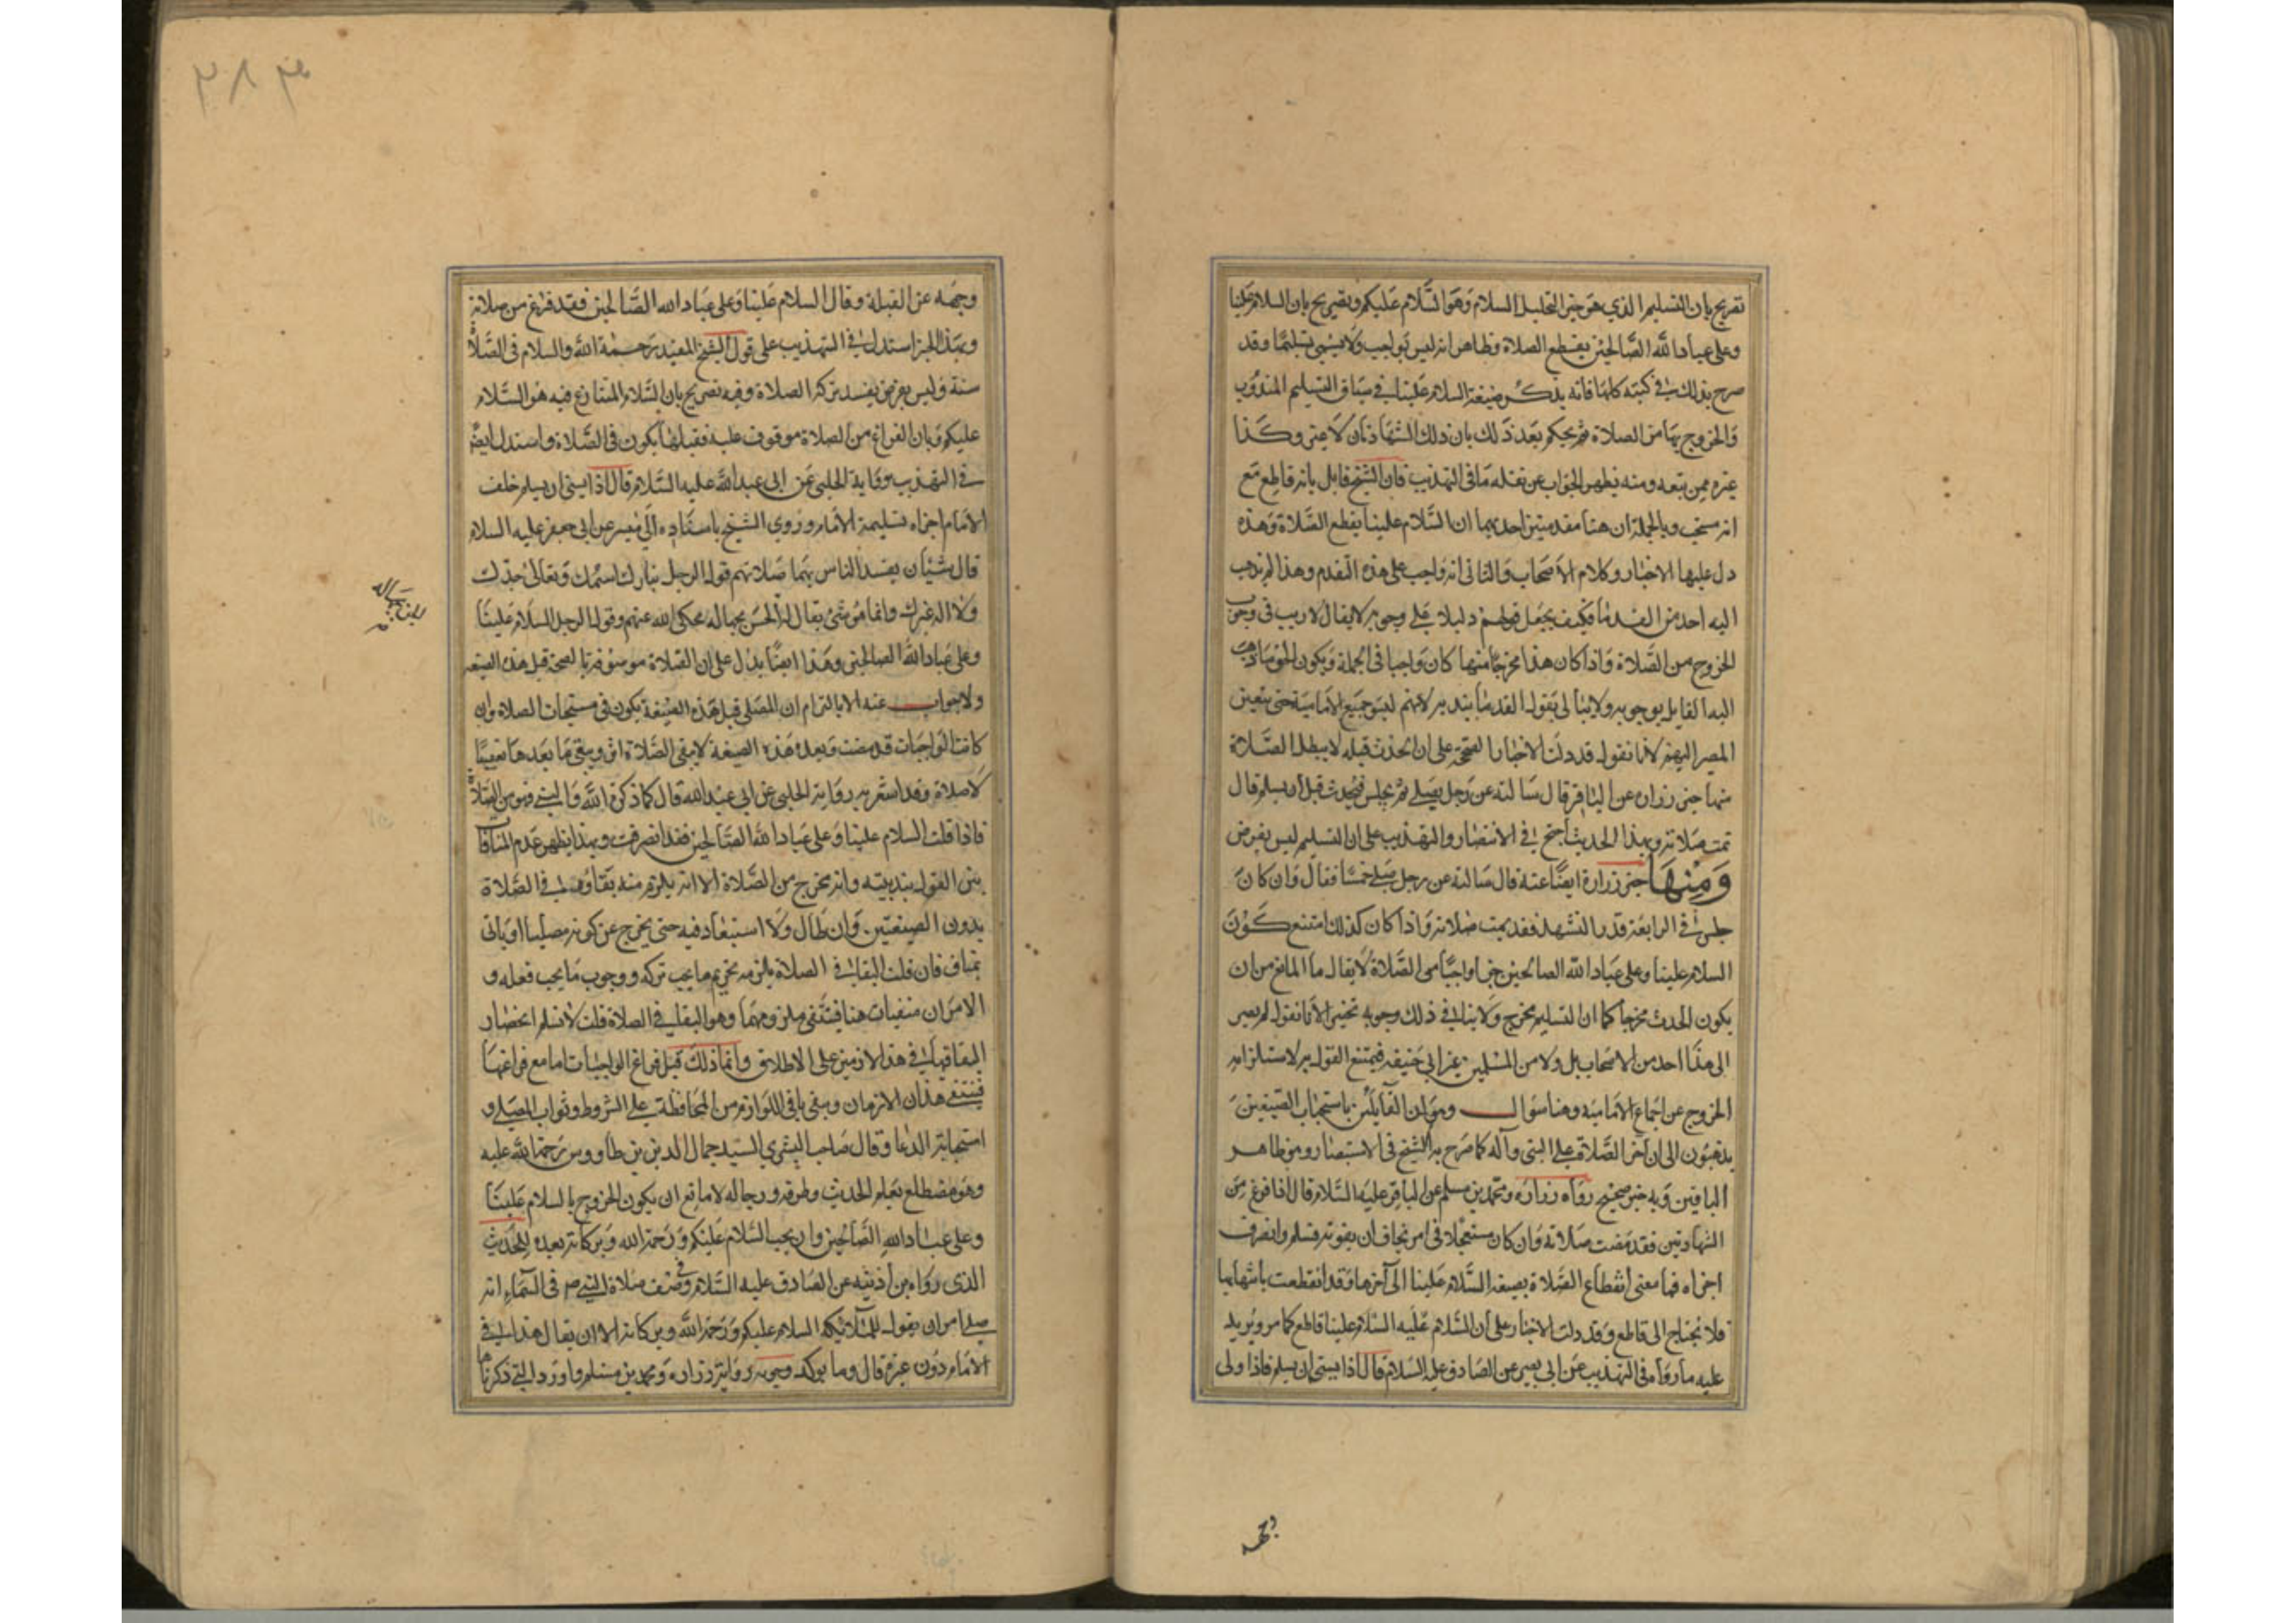 تصريح بان التسليم الذي هو خير التحليل السلام وهو السلام عليكم وتصريح بان السلام علينا
وعلى عباد الله الصالحين يقطع الصلاة وظاهره انه ليس بواجب ولا يسمى تسليما وقد
صرح بذلك في كتبه كلها فانه يذكر صيغة السلام علينا في سياق التسليم المندوب
والخروج بها من الصلاة ثم يحكم بعد ذلك بان ذلك الشهادتان لا غير وكذا
غيره ممن تبعه ومنه يظهر الجواب عن نقله ما في التهذيب فان الشيخ قايل بانه قاطع مع
انه مستحب وبالجملة ان هنا مقدمتين احديهما ان السلام علينا يقطع الصلاة وهذه
دل عليها الاخبار وكلام الاصحاب والثاني انه واجب على هذه التقدم وهذا لم يذهب
اليه احد من القدما فكيف يجعل قولهم دليلا على وجوبه لا يقال لا ريب في وجوب
الخروج من الصلاة واذا كان هذا مخرجا منها كان واجبا في الجملة ويكون الحق ما ذهب
اليه القايل بوجوبه ولا يبالى بقول القدما بندبه لانهم ليسو جميع الامامية حتى يتعين
المصير اليهم لانا نقول قد دلت الاخبار الصحيحة على ان الحدث قبله لا يبطل الصلاة
منها خبر زراره عن الباقر قال سالته عن رجل يصلي ثم يجلس فيحدث قبل ان يسلم قال
تمت صلاته وبهذا الحديث احتج في الاستبصار والتهذيب على ان التسليم ليس بفرض
ومنها خبر زرارة ايضا عنه قال سالته عن رجل صلى خمسا فقال وان كان
جلس في الرابعة قدر التشهد فقد تمت صلاته واذا كان كذلك امتنع كون
السلام علينا وعلى عباد الله الصالحين جزءا واجبا من الصلاة لا يقال ما المانع من ان
يكون الحدث مخرجا كما ان التسليم مخرج ولا ينافي ذلك وجوبه تخييرا لانا نقول لم يصر
الى هذا احد من الاصحاب بل ولا من المسلمين غير ابي حنيفه فيمتنع القول به لاستلزامه
الخروج عن اجماع الامامية وهنا سوال وهو ان القايلين باستحباب الصيغتين
يذهبون الى ان اخر الصلاة على النبي وآله كما صرح به الشيخ في الاستبصار وهو ظاهر
الباقين وبه خبر صحيح رواه زراره ومحمد بن مسلم عن الباقر عليه السلام قال اذا فرغ من
الشهادتين فقد مضت صلاته وان كان مستعجلا في امر يخاف ان يفوته فسلم وانصرف
اجزاه فما معنى انقطاع الصلاة بصيغه السلام علينا الى آخرها وقد انقطعت بانتهايها
فلا يحتاج الى قاطع وقد دلت الاخبار على ان السلام عليه السلام علينا قاطع كما مر ونزيد
عليه ما رواه في التهذيب عن ابي بصير عن الصادق عليه السلام قال اذا نسي ان يسلم فاذا ولى
وجهه
٣٨٣
وجهه عن القبلة وقال السلام علينا وعلى عباد الله الصالحين فقد فرغ من صلاته
وبهذا الخبر استدل في التهذيب على قول الشيخ المفيد رحمة الله والسلام في الصلاة
سنة وليس بفرض يفسد بتركه الصلاة وفيه تصريح بان السلام المتنازع فيه هو السلام
عليكم وبان الفراغ من الصلاة موقوف عليه فقبلها يكون في الصلاة واستدل ايضا
في التهذيب برواية الحلبي عن ابي عبد الله عليه السلام قال اذا نسي ان يسلم خلف
الامام اجزاه تسليمة الامام وروي الشيخ باسناده الى ميسر عن ابي جعفر عليه السلام
قال شيئان يفسد الناس بهما صلاتهم قول الرجل تبارك اسمك وتعالى جدك
ولا اله غيرك وانما هو شئ يقال له الجن بجهاله فحكى الله عنهم وقول الرجل السلام علينا
وعلى عباد الله الصالحين وهذا ايضا يدل على ان الصلاة موصوفة بالصحة قبل هذه الصيغه
ولا جواب عنه الا بالتزام ان المصلى قبل هذه الصيغة يكون في مستحبات الصلاة وان
كانت الواجبات قد مضت وبعد هذه الصيغة لا يبقى الصلاة اثر ويبقى ما بعدها تعقيبا
لا صلاة وقد اشعر به رواية الحلبي عن ابي عبد الله قال كلما ذكرت الله والنبي فهو من الصلاة
فاذا قلت السلام علينا وعلى عباد الله الصالحين فقد انصرفت وبهذا يظهر عدم المنافاة
بين القول بندبيته وانه مخرج من الصلاة الا انه يلزم منه بقاؤه في الصلاة
بدون الصيغتين وان طال ولا استبعاد فيه حتى يخرج عن كونه مصليا او ياتى
بمناف فان قلت البقا في الصلاة يلزمه تحريم ما يجب تركه ووجوب ما يجب فعله و
الامران منتفيان هنا فينتفى ملزومهما وهو البقا في الصلاة قلت لا نسلم انحصار
البقا في هذا الازمين على الاطلاق وانما ذلك قبل فراغ الواجبات اما مع فراغها
فينتفي هذان الازمان ويبقى باقي اللوازم من المحافظة على الشروط وثواب المصلي و
استجابة الدعا وقال صاحب البشرى السيد جمال الدين بن طاووس رحمة الله عليه
وهو مضطلع بعلم الحديث وطرقه ورجاله لا مانع ان يكون الخروج بالسلام علينا
وعلى عباد الله الصالحين وان يجب السلام عليكم ورحمة الله وبركاته بعده للحديث
الذي رواه بن اذينه عن الصادق عليه السلام في وصف صلاة النبي ص في السماء انه
صلى امر ان يقول للملائكه السلام عليكم ورحمة الله وبركاته الا ان يقال هذا في
الامام دون غيره قال وما يوكد وجوبه رواية زراره ومحمد بن مسلم واورد التي ذكرناها